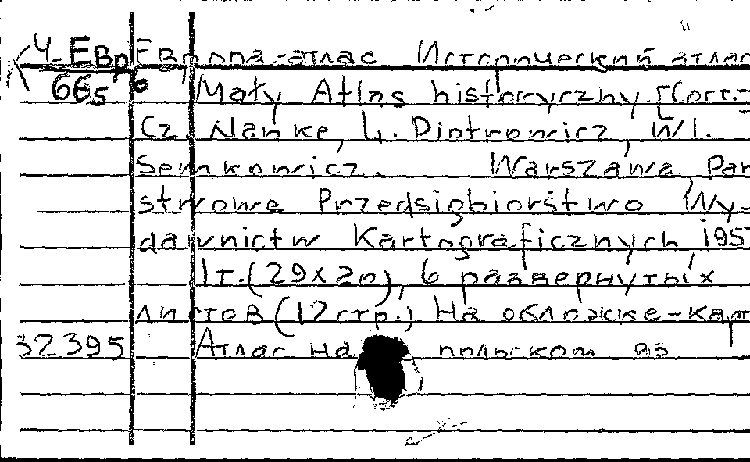 Ч-Евр Европа-атлас Исторический атлас
665 Mały Atlas historyczny. [Corr.-
Cz Nanke, L. Piotrowicz, Wł.
Semkowicz. Warszawa, Pań
stwowe Przedsiębiorstwo Wy-
dawnictw Kartograficznych, 195
1т. (29x20), 6 развернутых
листов (12 стр.) На обложке-кар
32395 Атлас на польском яз